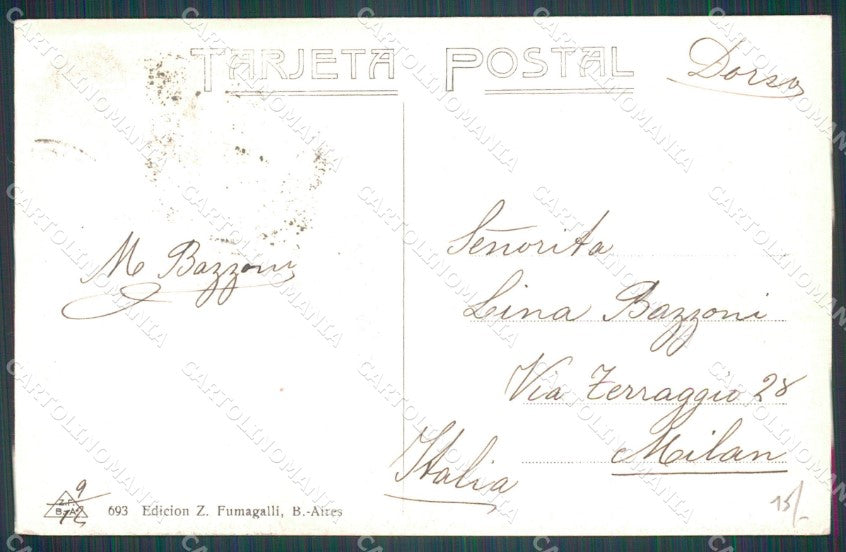 TARJETA POSTAL
Dorso
M Bazzoni
Señorita
Lina Bazzoni
Via Terraggio 28
Milan
Italia
9/12
Z.F.
B-A
693 Edicion Z. Fumagalli, B.-Aires
15/-
CARTOLINOMANIA